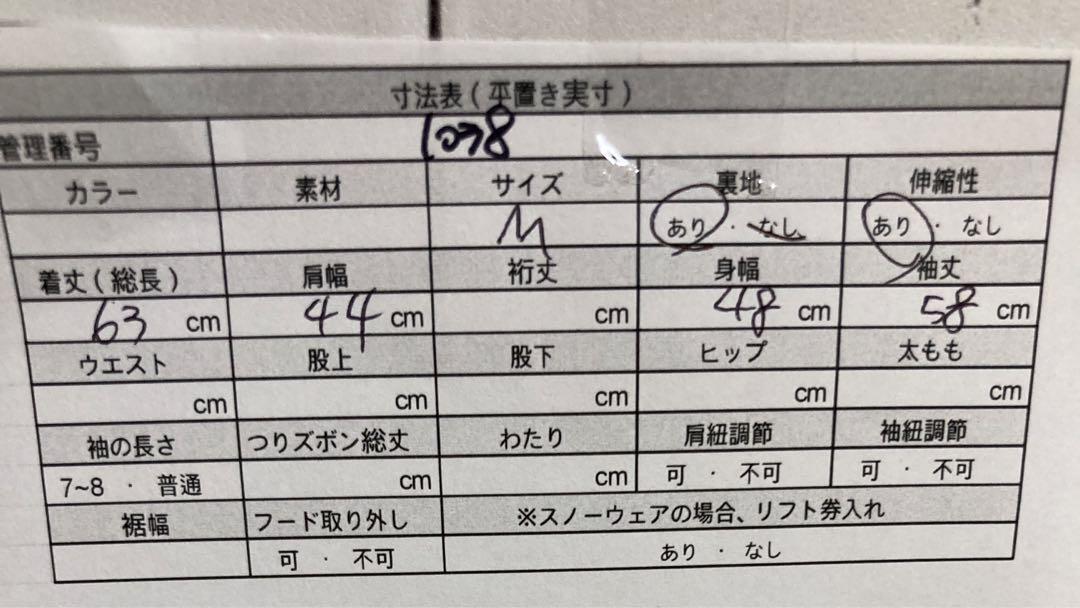 寸法表(平置き実寸)
管理番号
カラー 素材 サイズ 裏地 伸縮性
M あり・なし あり・なし
着丈(総長) 肩幅 裄丈 身幅 袖丈
63 cm 44 cm cm 48 cm 58 cm
ウエスト 股上 股下 ヒップ 太もも
cm cm cm cm cm
袖の長さ つりズボン総丈 わたり 肩紐調節 袖紐調節
7~8 ・ 普通 cm cm 可 ・ 不可 可 ・ 不可
裾幅 フード取り外し ※スノーウェアの場合、リフト券入れ
可 ・ 不可 あり ・ なし